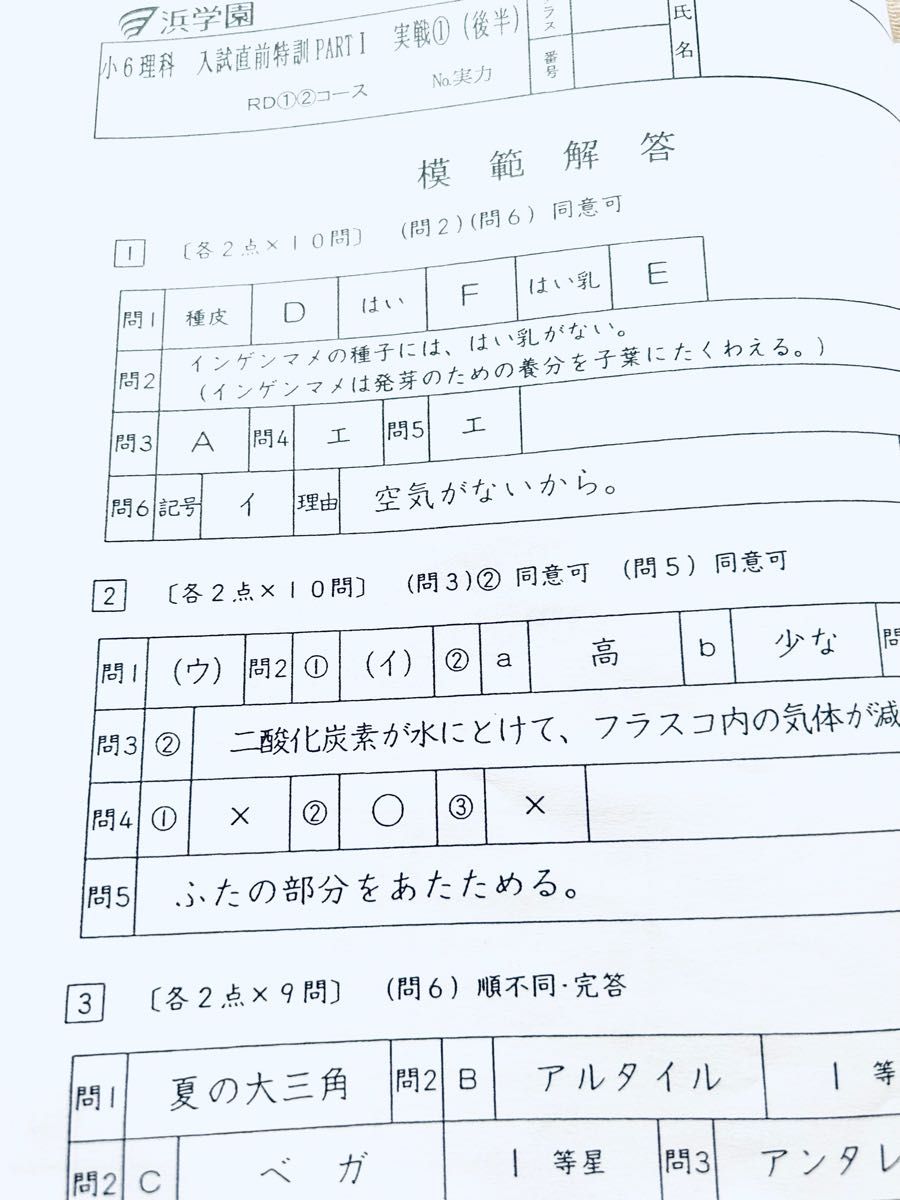 浜学園
小6理科 入試直前特訓PART I 実戦① (後半)
RD①②コース No.実力
クラス
番号
氏名
模範解答
1 〔各2点×10問〕 (問2)(問6) 同意可
問1 種皮 D はい F はい乳 E
問2 インゲンマメの種子には、はい乳がない。
(インゲンマメは発芽のための養分を子葉にたくわえる。)
問3 A 問4 エ 問5 エ
問6 記号 イ 理由 空気がないから。
2 〔各2点×10問〕 (問3)② 同意可 (問5) 同意可
問1 (ウ) 問2 ① (イ) ② a 高 b 少な 問
問3 ② 二酸化炭素が水にとけて、フラスコ内の気体が減
問4 ① × ② ○ ③ ×
問5 ふたの部分をあたためる。
3 〔各2点×9問〕 (問6) 順不同・完答
問1 夏の大三角 問2 B アルタイル 1 等
問2 C ベガ 1 等星 問3 アンタレ